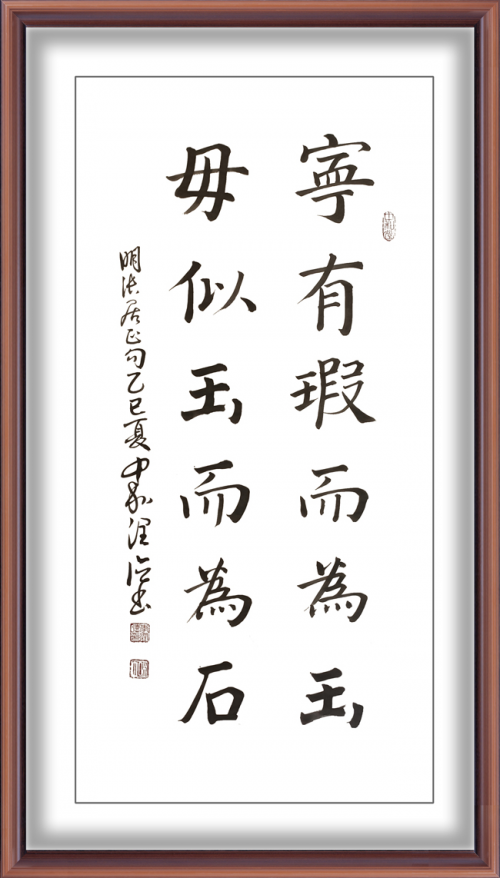 寧有瑕而為玉
毋似玉而為石
明張居正句乙巳夏中